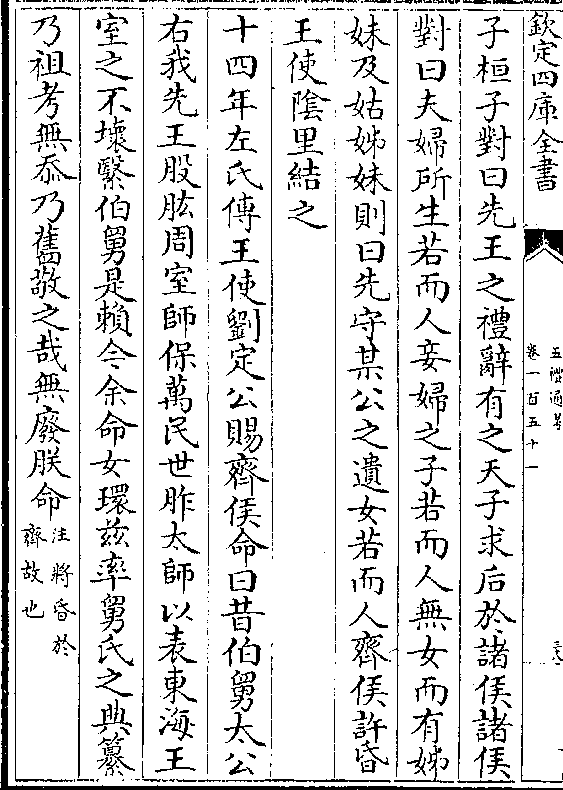 欽定四庫全書
五禮通考
卷一百五十一
子桓子對曰先王之禮辭有之天子求后於諸侯諸侯
對曰夫婦所生若而人妾婦之子若而人無女而有姊
妹及姑姊妹則曰先守某公之遺女若而人齊侯許昏
王使隂里結之
十四年左氏傳王使劉定公賜齊侯命曰昔伯舅太公
右我先王股肱周室師保萬民世胙太師以表東海王
室之不壞繄伯舅是賴今余命女環茲率舅氏之典纂
乃祖考無忝乃舊敬之哉無廢朕命
注將昏於
齊故也